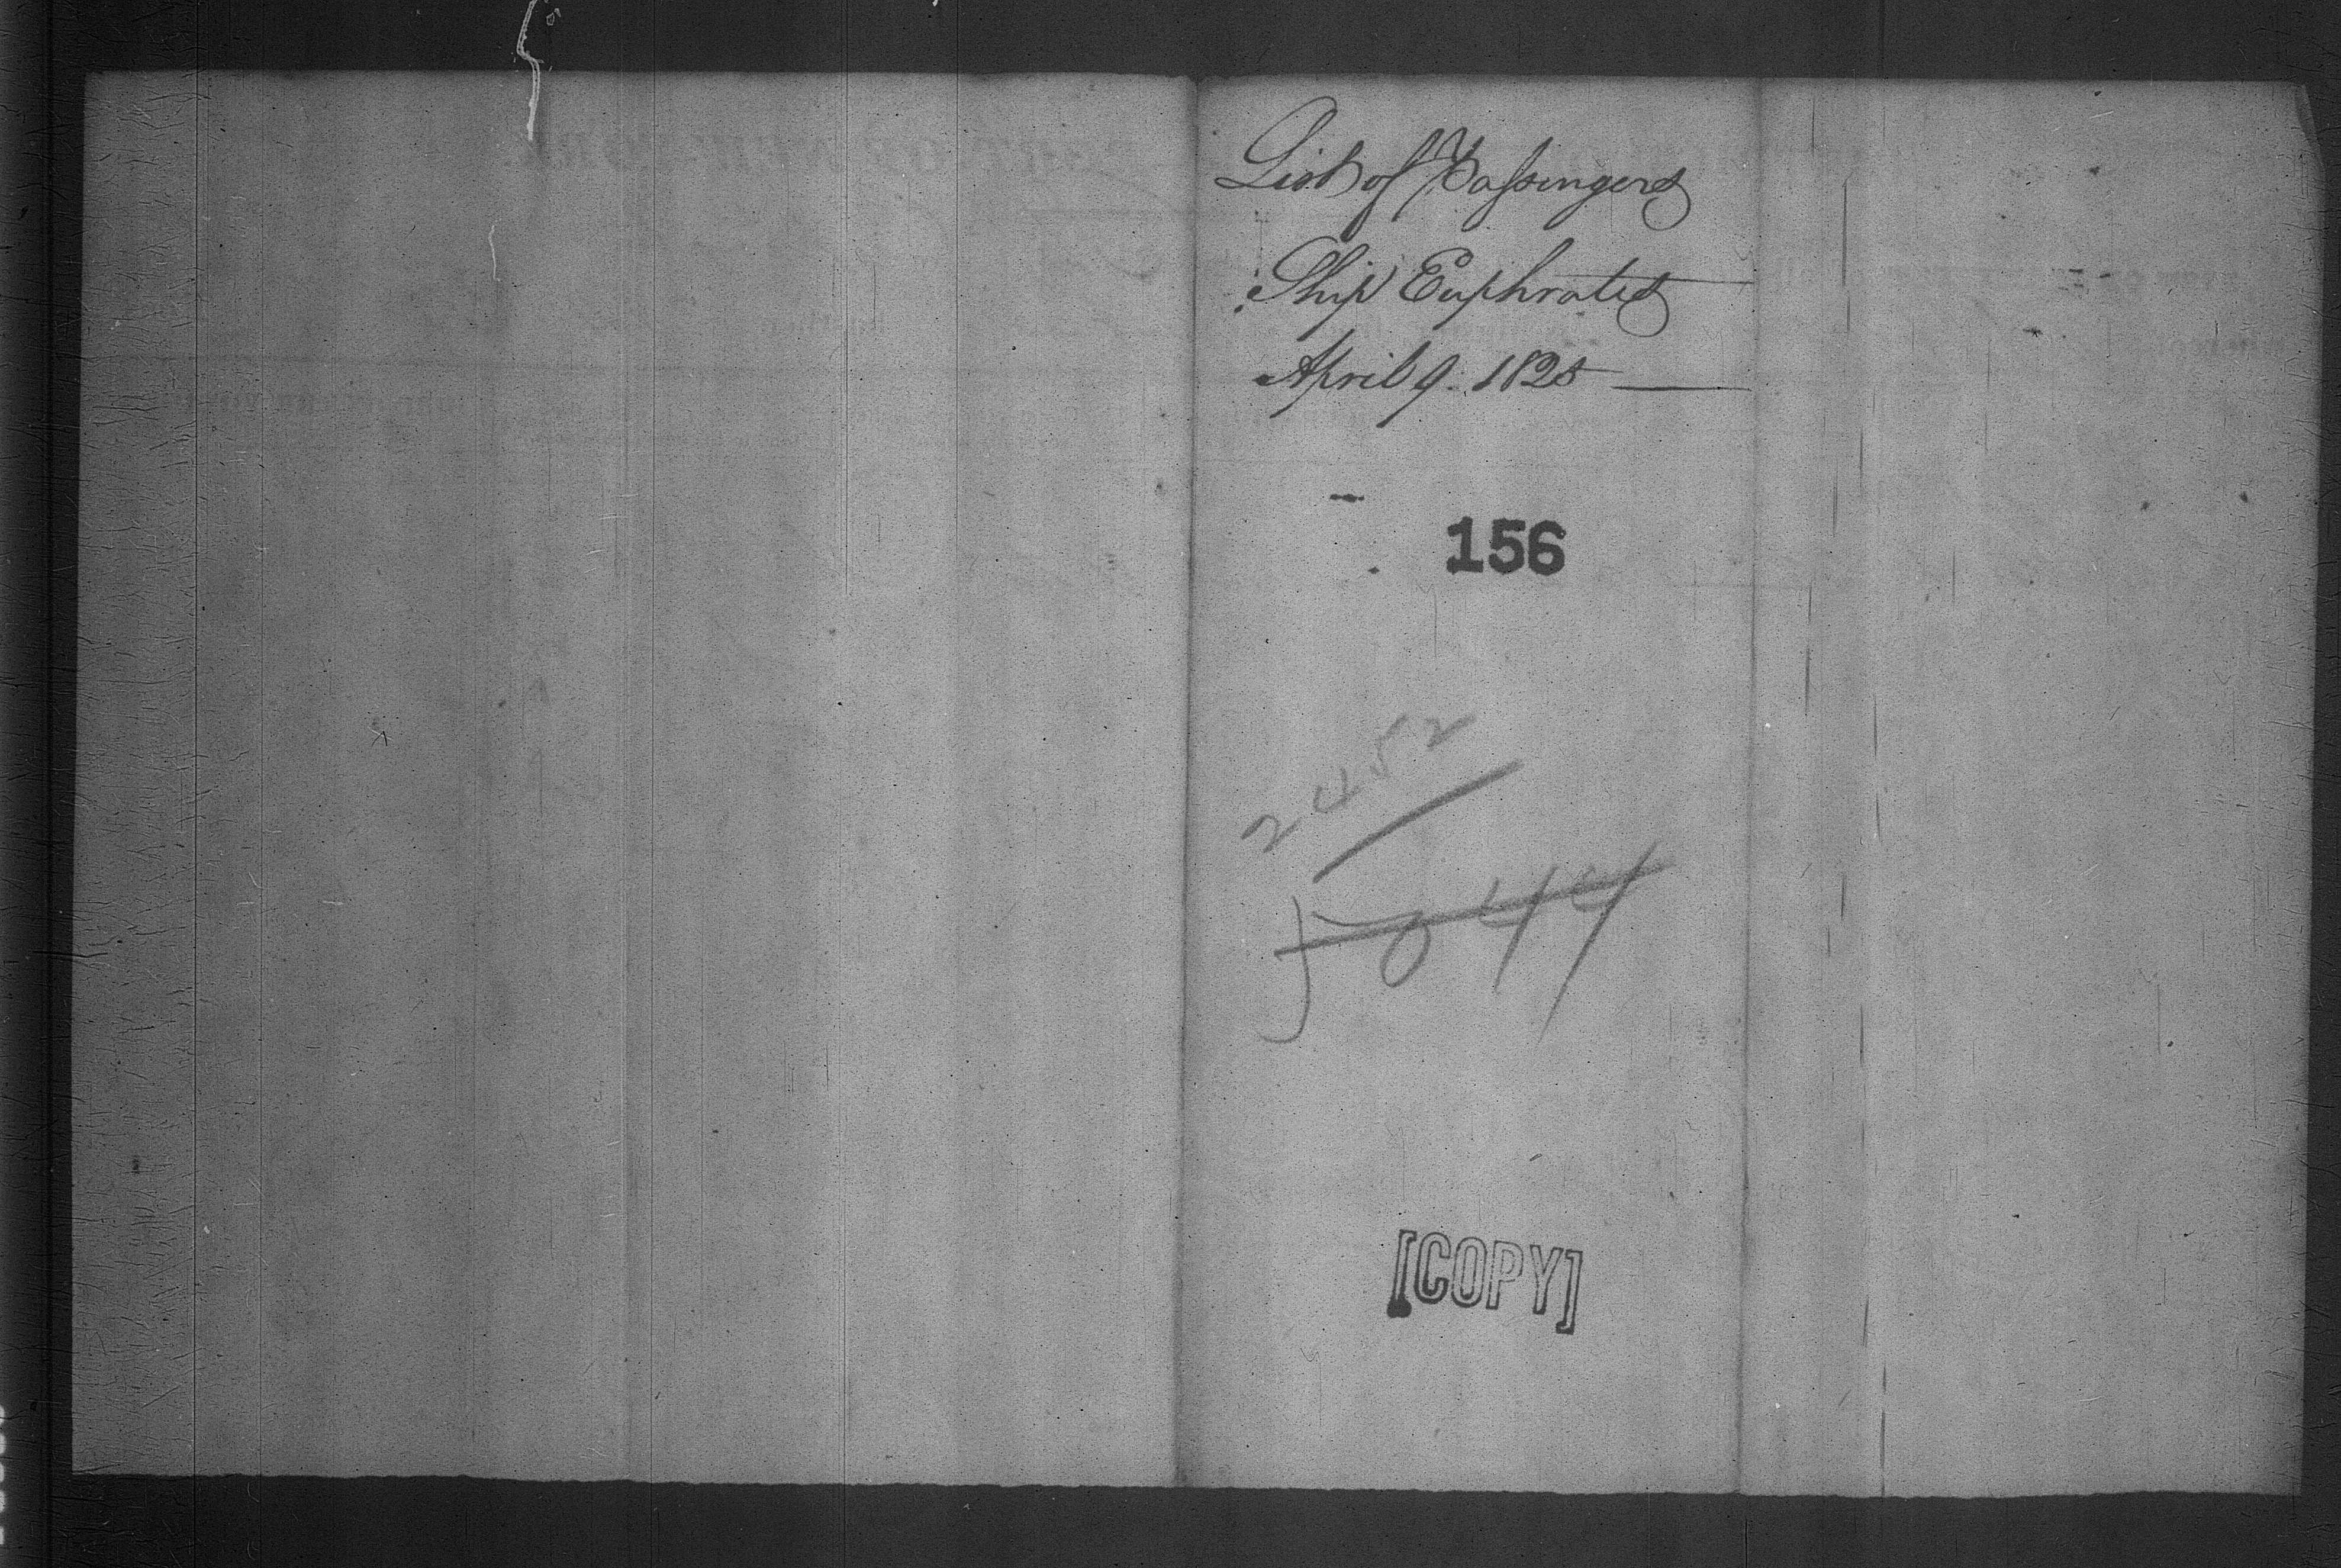 List of Passingers
Ship Euphrates
April 9. 1825
156
2452
5044
[COPY]